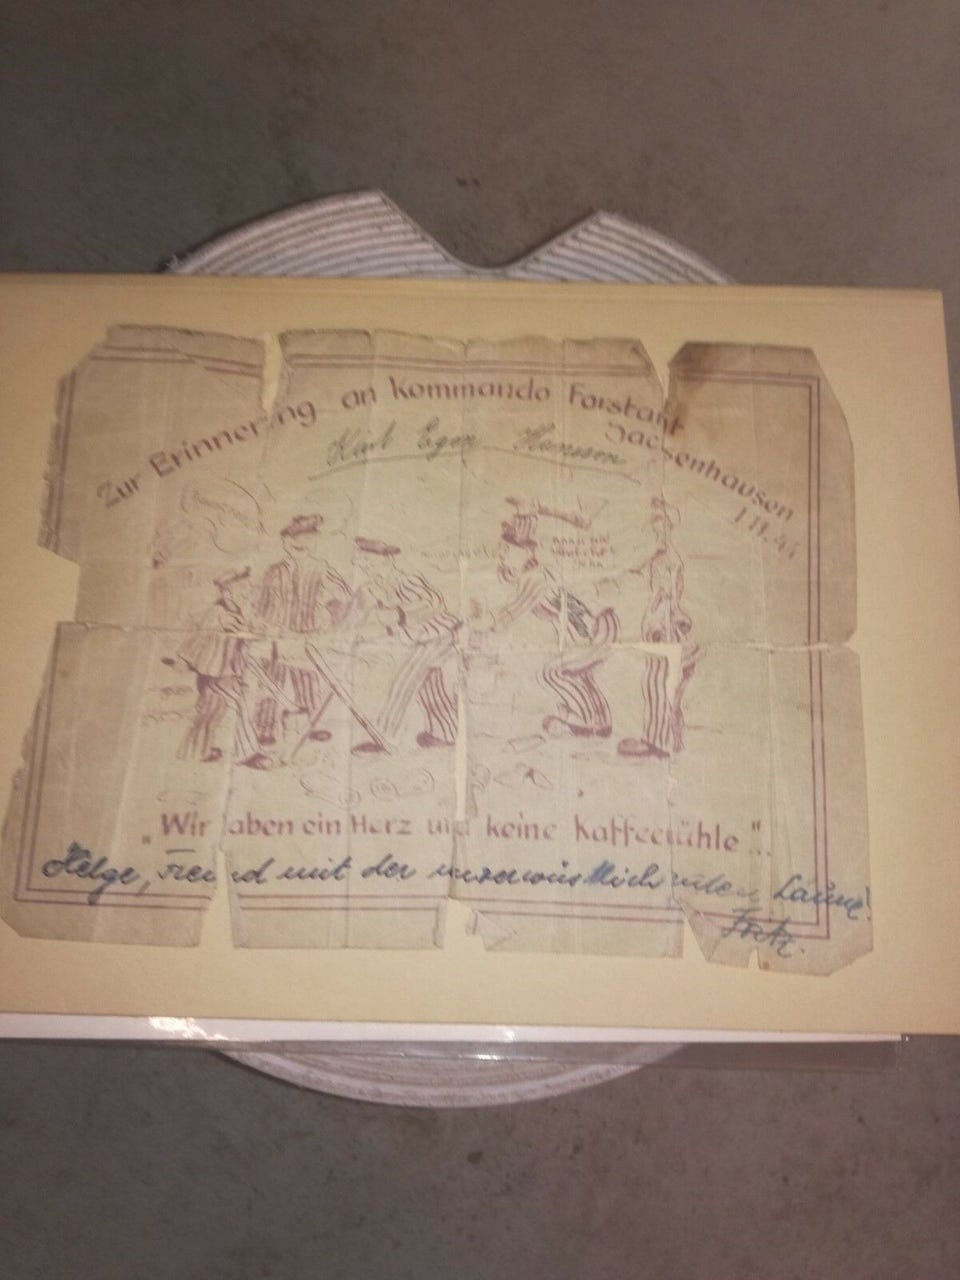 Zur Erinnerung an Kommando Forstamt
Sachsenhausen
1.11.44
Karl Egon Hansson
"Wir haben ein Herz und keine Kaffeemühle"..
Helge, Freund mit der unverwüstlich guten Laune!
Fritz.